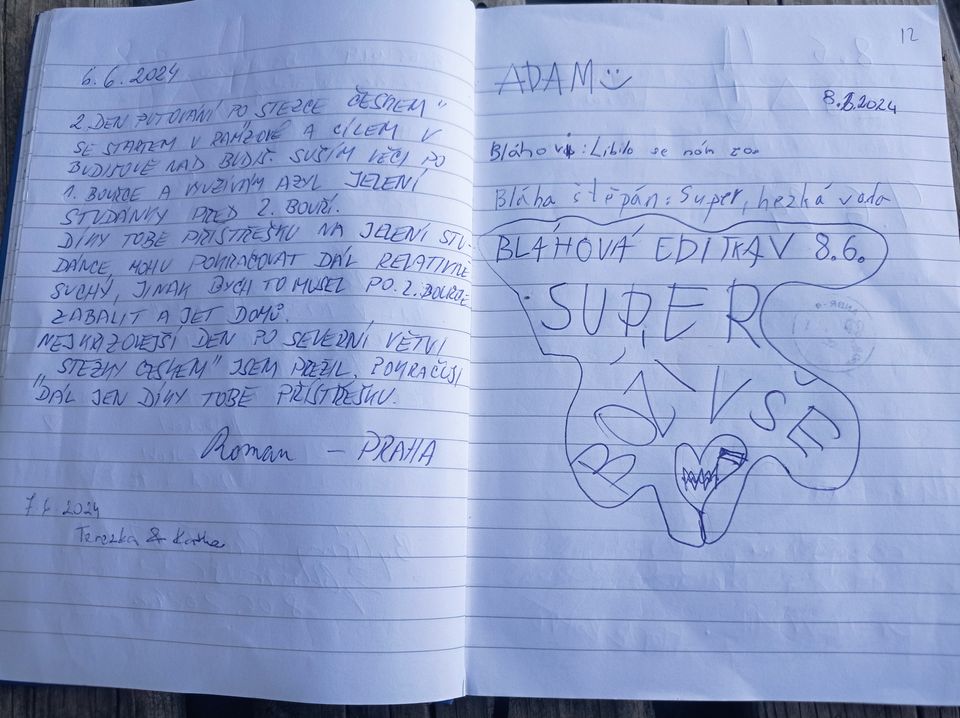 6.6.2024
2. DEN PUTOVÁNÍ PO STEZCE ČESKEM"
SE STARTEM V RAMZOVÉ A CÍLEM V
BUDIŠOVĚ NAD BUDIŠ. SUŠÍM VĚCI PO
1. BOUŘCE A VYUŽÍVÁM AZYL JELENÍ
STUDÁNKY PŘED 2. BOUŘÍ.
DÍKY TOBE PŘÍSTŘEŠKU NA JELENÍ STU-
DÁNCE, MOHU POKRAČOVAT DÁL RELATIVNĚ
SUCHÝ, JINAK BYCH TO MUSEL PO 2. BOUŘCE
ZABALIT A JET DOMŮ.
NEJKRIZOVEJŠÍ DEN PO SEVERNÍ VĚTVI
STEZKY ČESKEM" JSEM PŘEŽIL, POKRAČUJI
"DÁL JEN DÍKY TOBE PŘÍSTŘEŠKU.
Roman - PRAHA
2024
Terezka & Katka
12
ADAM
2024
Bláhovi: Líbilo se nám zde
Bláha Štěpán: Super, hezká voda
BLÁHOVÁ EDITKA V 8.6.
SUPER
VŠE